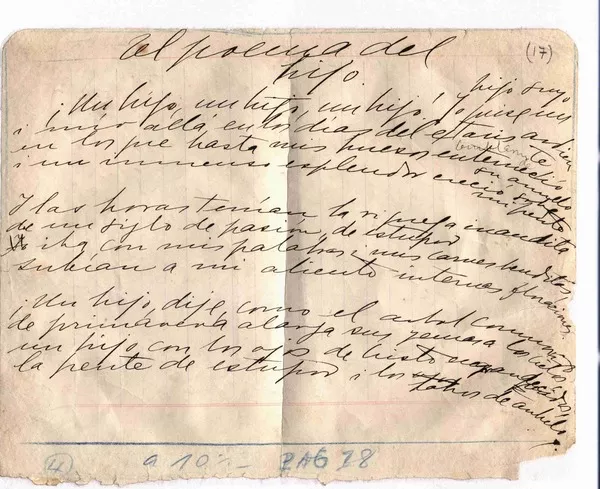 El poema del
hijo
(17)
¡Un hijo, un hijo, un hijo! Yo quise un hijo suyo
i mío, allá en los días del estasis ardiente
en los que hasta mis huesos
i un inmenso esplendor creció mi frente
I las horas tenían la
de un siglo de pasión, de estupor
con mis palabras, mis carnes benditas
subían a mi aliento internas
¡Un hijo, dije, como el arbol conmovido
de primavera alarga sus yemas a los cielos
un hijo con los ojos de Cristo engrandecidos
la frente de estupor i los labios de anhelo.
(4) a 10 PAG 78